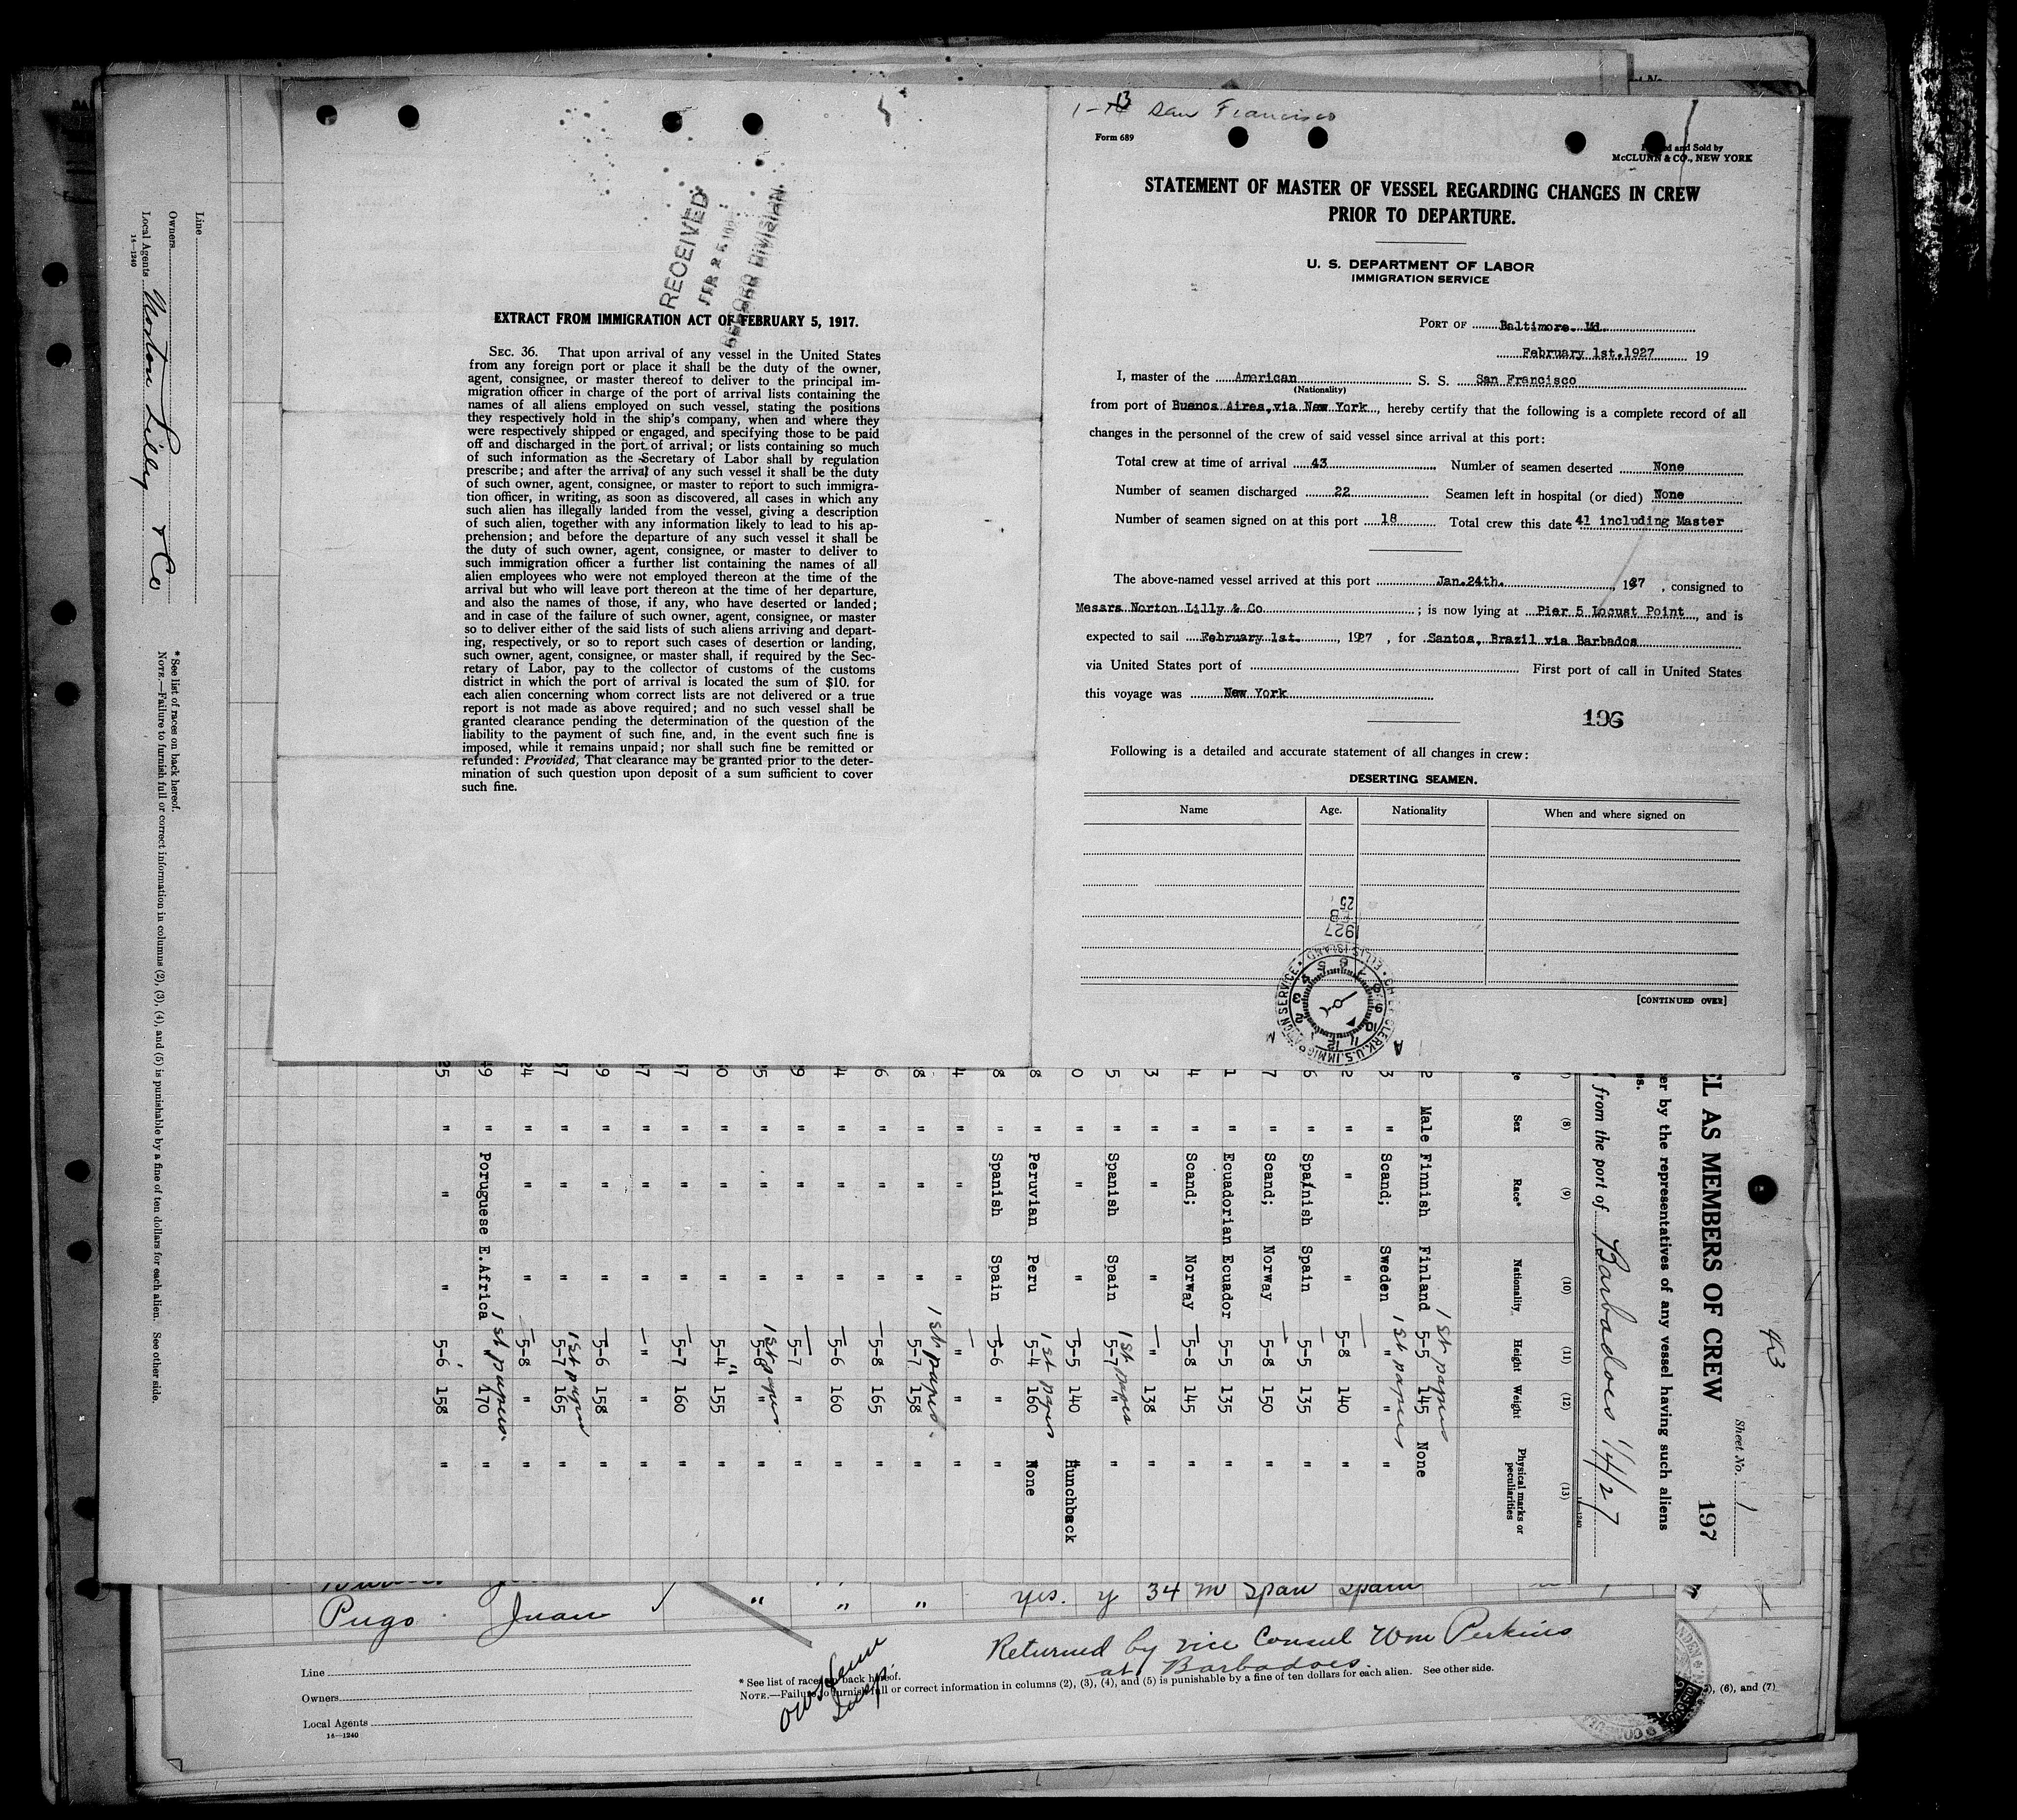 1-13 San Francisco
Form 689
and Sold by
McCLUNN & CO., NEW YORK
STATEMENT OF MASTER OF VESSEL REGARDING CHANGES IN CREW
PRIOR TO DEPARTURE.
U. S. DEPARTMENT OF LABOR
IMMIGRATION SERVICE
PORT OF Baltimore. Md.
February 1st.1927 19
I, master of the American S. S. San Francisco
(Nationality)
from port of Buenos Aires, via New York, hereby certify that the following is a complete record of all
changes in the personnel of the crew of said vessel since arrival at this port:
Total crew at time of arrival 43 Number of seamen deserted None
Number of seamen discharged 22 Seamen left in hospital (or died) None
Number of seamen signed on at this port 18 Total crew this date 41 including Master
The above-named vessel arrived at this port Jan.24th. 1927, consigned to
Messrs Norton Lilly & Co ; is now lying at Pier 5 Locust Point, and is
expected to sail February 1st. , 1927 , for Santos, Brazil via Barbados
via United States port of First port of call in United States
this voyage was New York
196
Following is a detailed and accurate statement of all changes in crew:
DESERTING SEAMEN.
Name Age. Nationality When and where signed on
[CONTINUED OVER]
1927
FEB
25
CHIEF CLERK, U.S. IMMIGRATION SERVICE • ELLIS ISLAND •
RECEIVED
FEB 25
RECORD DIVISION
EXTRACT FROM IMMIGRATION ACT OF FEBRUARY 5, 1917.
SEC. 36. That upon arrival of any vessel in the United States
from any foreign port or place it shall be the duty of the owner,
agent, consignee, or master thereof to deliver to the principal im-
migration officer in charge of the port of arrival lists containing the
names of all aliens employed on such vessel, stating the positions
they respectively hold in the ship's company, when and where they
were respectively shipped or engaged, and specifying those to be paid
off and discharged in the port of arrival; or lists containing so much
of such information as the Secretary of Labor shall by regulation
prescribe; and after the arrival of any such vessel it shall be the duty
of such owner, agent, consignee, or master to report to such immigra-
tion officer, in writing, as soon as discovered, all cases in which any
such alien has illegally landed from the vessel, giving a description
of such alien, together with any information likely to lead to his ap-
prehension; and before the departure of any such vessel it shall be
the duty of such owner, agent, consignee, or master to deliver to
such immigration officer a further list containing the names of all
alien employees who were not employed thereon at the time of the
arrival but who will leave port thereon at the time of her departure,
and also the names of those, if any, who have deserted or landed;
and in case of the failure of such owner, agent, consignee, or master
so to deliver either of the said lists of such aliens arriving and depart-
ing, respectively, or so to report such cases of desertion or landing,
such owner, agent, consignee, or master shall, if required by the Sec-
retary of Labor, pay to the collector of customs of the customs
district in which the port of arrival is located the sum of $10. for
each alien concerning whom correct lists are not delivered or a true
report is not made as above required; and no such vessel shall be
granted clearance pending the determination of the question of the
liability to the payment of such fine, and, in the event such fine is
imposed, while it remains unpaid; nor shall such fine be remitted or
refunded: Provided, That clearance may be granted prior to the deter-
mination of such question upon deposit of a sum sufficient to cover
such fine.
43
Sheet No. 1
EL AS MEMBERS OF CREW 197
er by the representatives of any vessel having such aliens
es.
from the port of Barbadoes 1/4/27
14—1240
(8) (9) (10) (11) (12) (13)
Sex Race* Nationality Height Weight Physical marks or peculiarities
1st papers
2 Male Finnish Finland 5-5 145 None
1st papers
3 " Scand; Sweden " " "
2 " " " 5-8 140 "
6 " Spanish Spain 5-5 135 "
7 " Scand; Norway 5-8 150 "
1 " Ecuadorian Ecuador 5-5 135 "
4 " Scand; Norway 5-8 145 "
3 " " " " 138 "
1st papers
5 " Spanish Spain 5-7 " "
0 " " " 5-5 140 Hunchback
1st papers
8 " Peruvian Peru 5-4 160 None
8 " Spanish Spain 5-6 " "
4 " " " " " "
1st papers.
8 " " " 5-7 158 "
6 " " " 5-8 165 "
4 " " " 5-6 160 "
9 " " " 5-7 " "
1st papers
5 " " " 5-6 " "
0 " " " 5-4 155 "
7 " " " 5-7 160 "
7 " " " " " "
9 " " " 5-6 158 "
1st papers
7 " " " 5-7 165 "
4 " " " 5-8 " "
1st papers.
9 " Poruguese E.Africa " 170 "
5 " " " 5-6 158 "
* See list of races on back hereof.
NOTE.—Failure to furnish full or correct information in columns (2), (3), (4), and (5) is punishable by a fine of ten dollars for each alien. See other side.
Line
Owners
Local Agents Norton Lilly & Co
14—1240
yes. y 34 m Span Spain
Pugo Juan " " "
Returned by vice Consul Wm Perkins
at Barbadoes.
Line
Owners
Local Agents
14—1240
* See list of races on back hereof.
NOTE.—Failure to furnish full or correct information in columns (2), (3), (4), and (5) is punishable by a fine of ten dollars for each alien. See other side.
), (6), and (7)